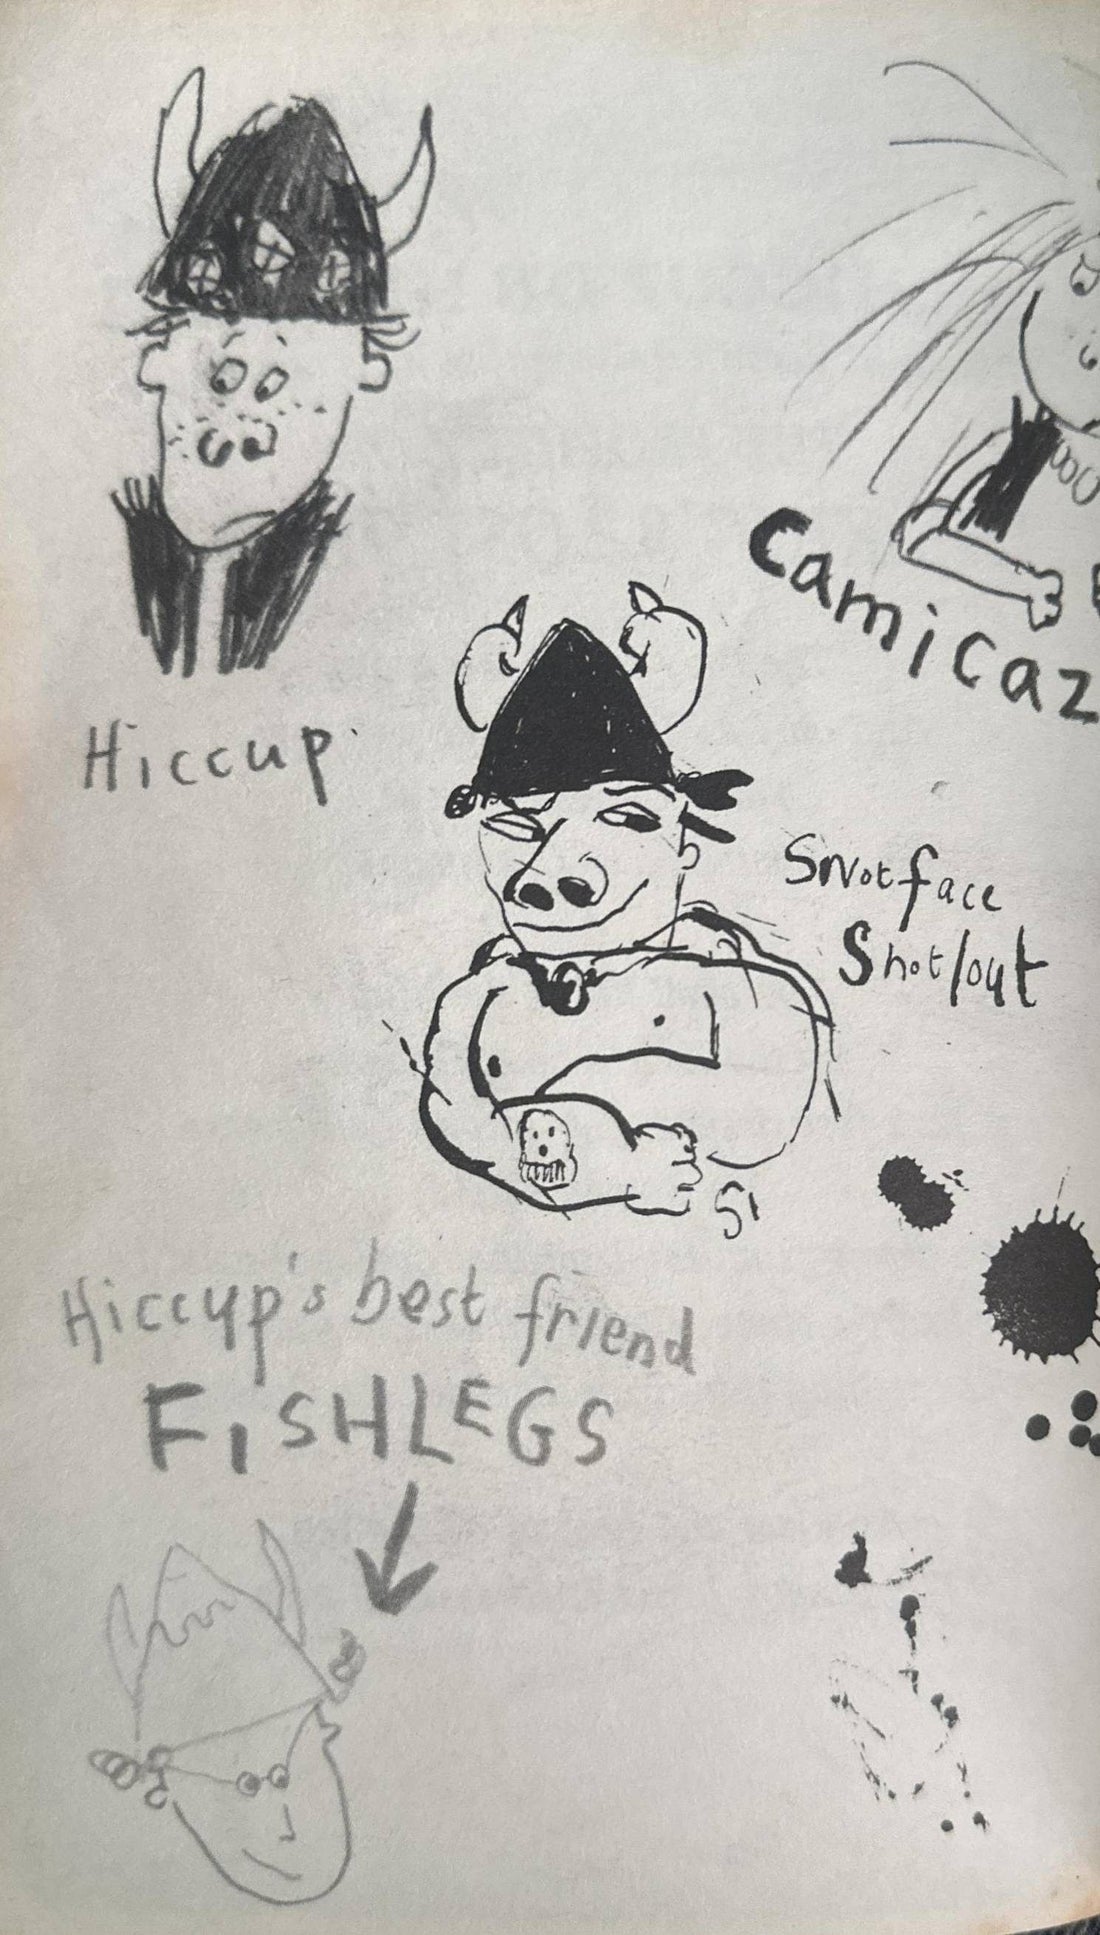 Hiccup
Camicaz
Snotface
Snotlout
Hiccup's best friend
FISHLEGS